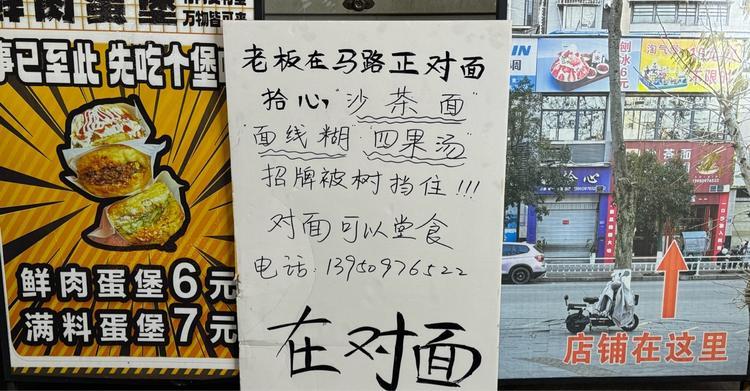 鲜肉蛋堡
万物皆可
事已至此 先吃个堡
鲜肉蛋堡6元
满料蛋堡7元
老板在马路正对面
拾心,"沙茶面"
"面线糊" "四果汤"
招牌被树挡住!!!
对面可以堂食
电话:13950976522
在对面
刨冰6元
拾心
茶面
店铺在这里